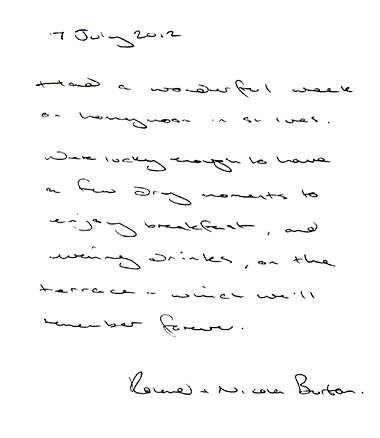 7 July 2012
Had a wonderful week
on honeymoon in St Ives.
Were lucky enough to have
a few dry moments to
enjoy breakfast, and
evening drinks, on the
terrace - which we'll
remember forever.
Roland + Nicola Burton.